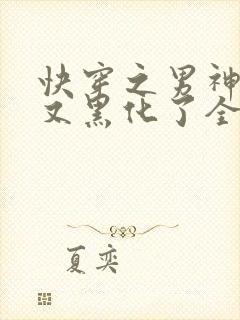 快穿之男神
又黑化了全
夏奕